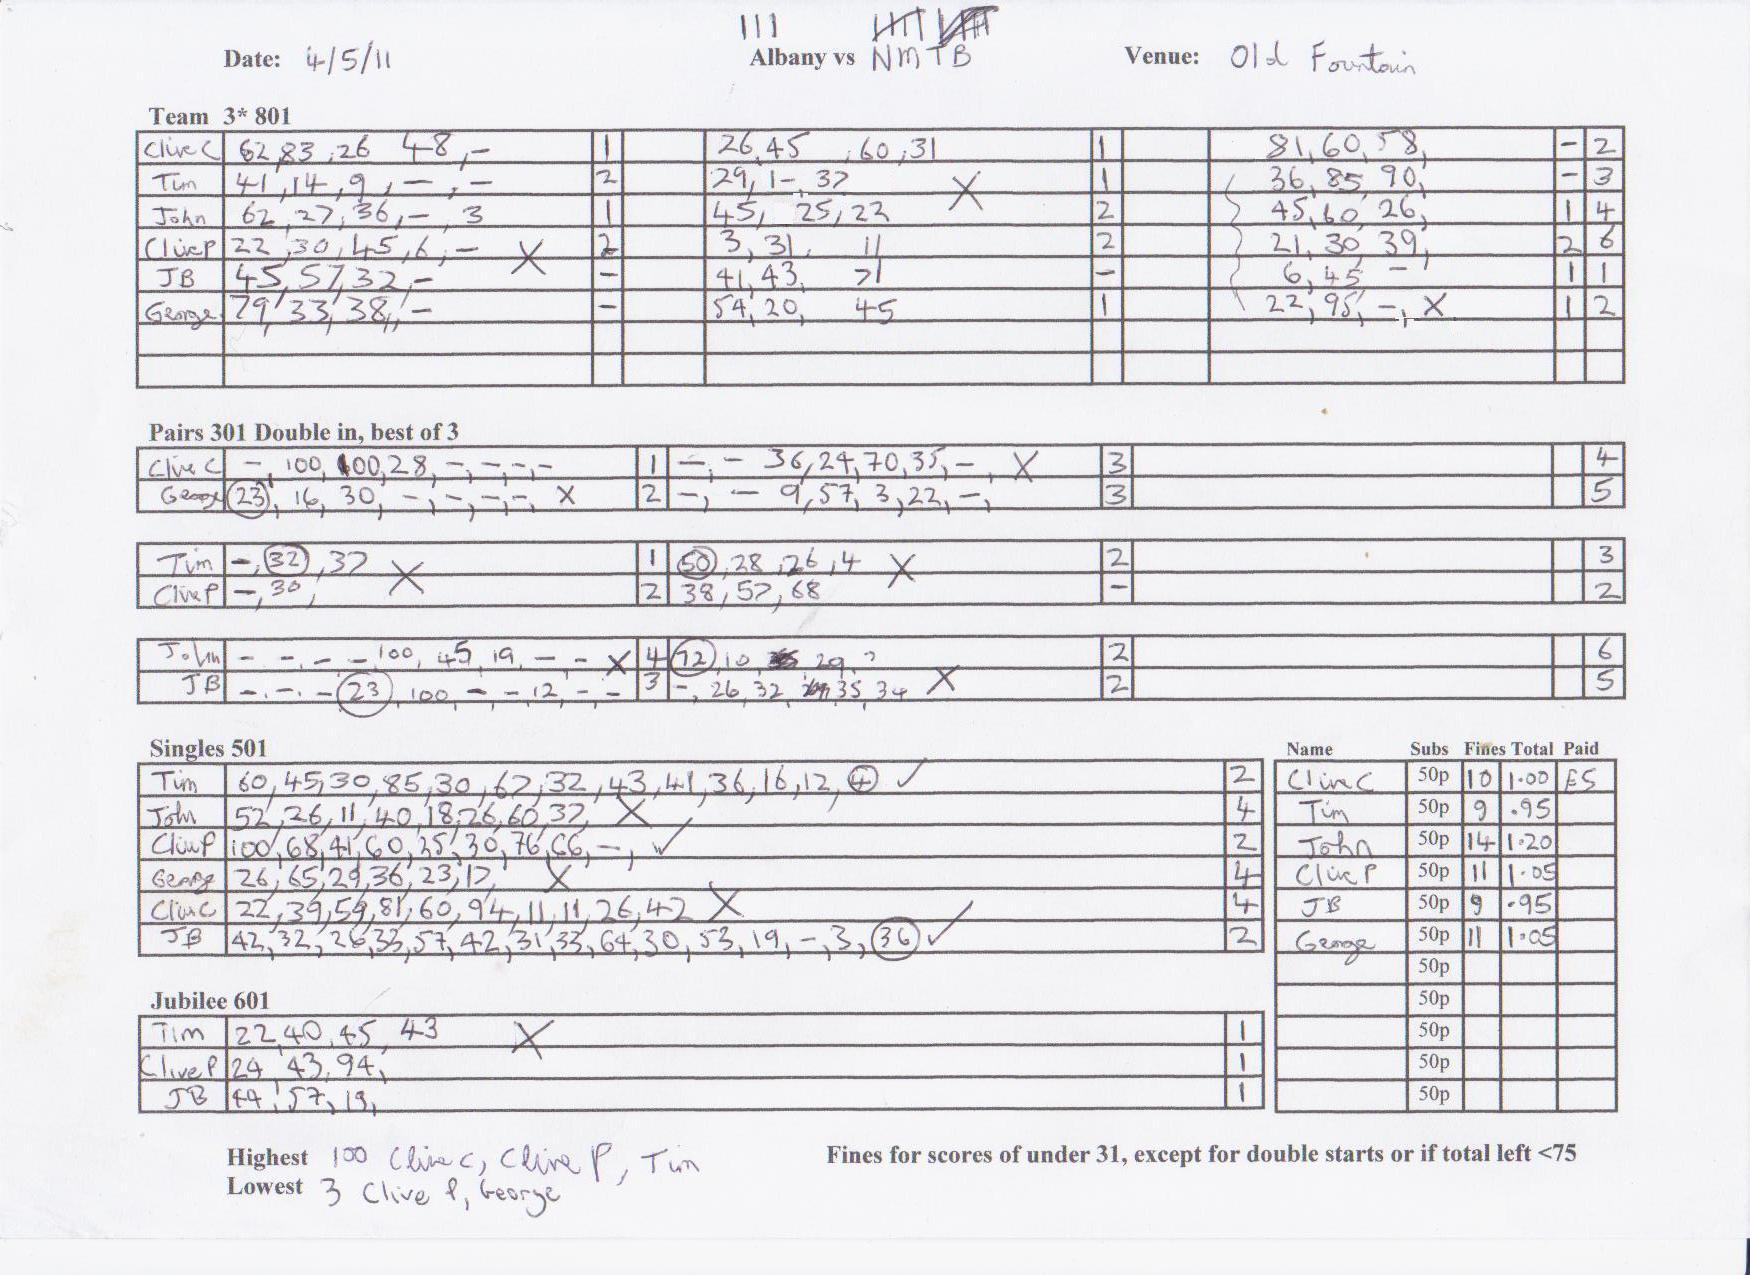 III
Date: 4/5/11 Albany vs NMTB Venue: Old Fountain
Team 3* 801
Clive C 62, 83, 26 48, - 1 26, 45, 60, 31 1 81, 60, 58, - 2
Tim 41, 14, 9, -, - 2 29, 1-, 37 X 1 36, 85, 90, - 3
John 62, 27, 36, -, 3 1 45, 25, 22 2 45, 60, 26, 1 4
Clive P 22, 30, 45, 6, - X 2 3, 31, 11 2 21, 30, 39, 2 6
JB 45, 57, 32, - - 41, 43, 71 - 6, 45 - 1 1
George 79, 33, 38, - - 54, 20, 45 1 22, 95, -, X 1 2
Pairs 301 Double in, best of 3
Clive C -, 100, 100, 28, -, -, -, - 1 -, - 36, 24, 70, 35, -, X 3 4
George 23, 16, 30, -, -, -, -, X 2 -, - 9, 57, 3, 22, -, 3 5
Tim -, 32, 37 X 1 50, 28, 26, 4 X 2 3
Clive P -, 30, 2 38, 57, 68 - 2
John - -, - -, 100, 45, 19, -, - X 4 72, 10, 29, ? 2 6
JB -, -, - 23, 100 - - 12, - - 3 -, 26, 32, 35, 34 X 2 5
Singles 501
Tim 60, 45, 30, 85, 30, 67, 32, 43, 41, 36, 16, 12, 4 ✓ 2
John 52, 26, 11, 40, 18, 26, 60, 37, X 4
Clive P 100, 68, 41, 60, 25, 30, 76, 66, -, ✓ 2
George 26, 65, 29, 36, 23, 17, X 4
Clive C 22, 39, 59, 81, 60, 94, 11, 11, 26, 42 X 4
JB 42, 32, 26, 33, 57, 42, 31, 33, 64, 30, 53, 19, -, 3, 36 ✓ 2
Name Subs Fines Total Paid
Clive C 50p 10 1.00 £5
Tim 50p 9 .95
John 50p 14 1.20
Clive P 50p 11 1.05
JB 50p 9 .95
George 50p 11 1.05
50p
50p
50p
50p
50p
Jubilee 601
Tim 22, 40, 45, 43 X 1
Clive P 24, 43, 94, 1
JB 44, 57, 19, 1
Highest 100 Clive C, Clive P, Tim
Lowest 3 Clive P, George
Fines for scores of under 31, except for double starts or if total left <75